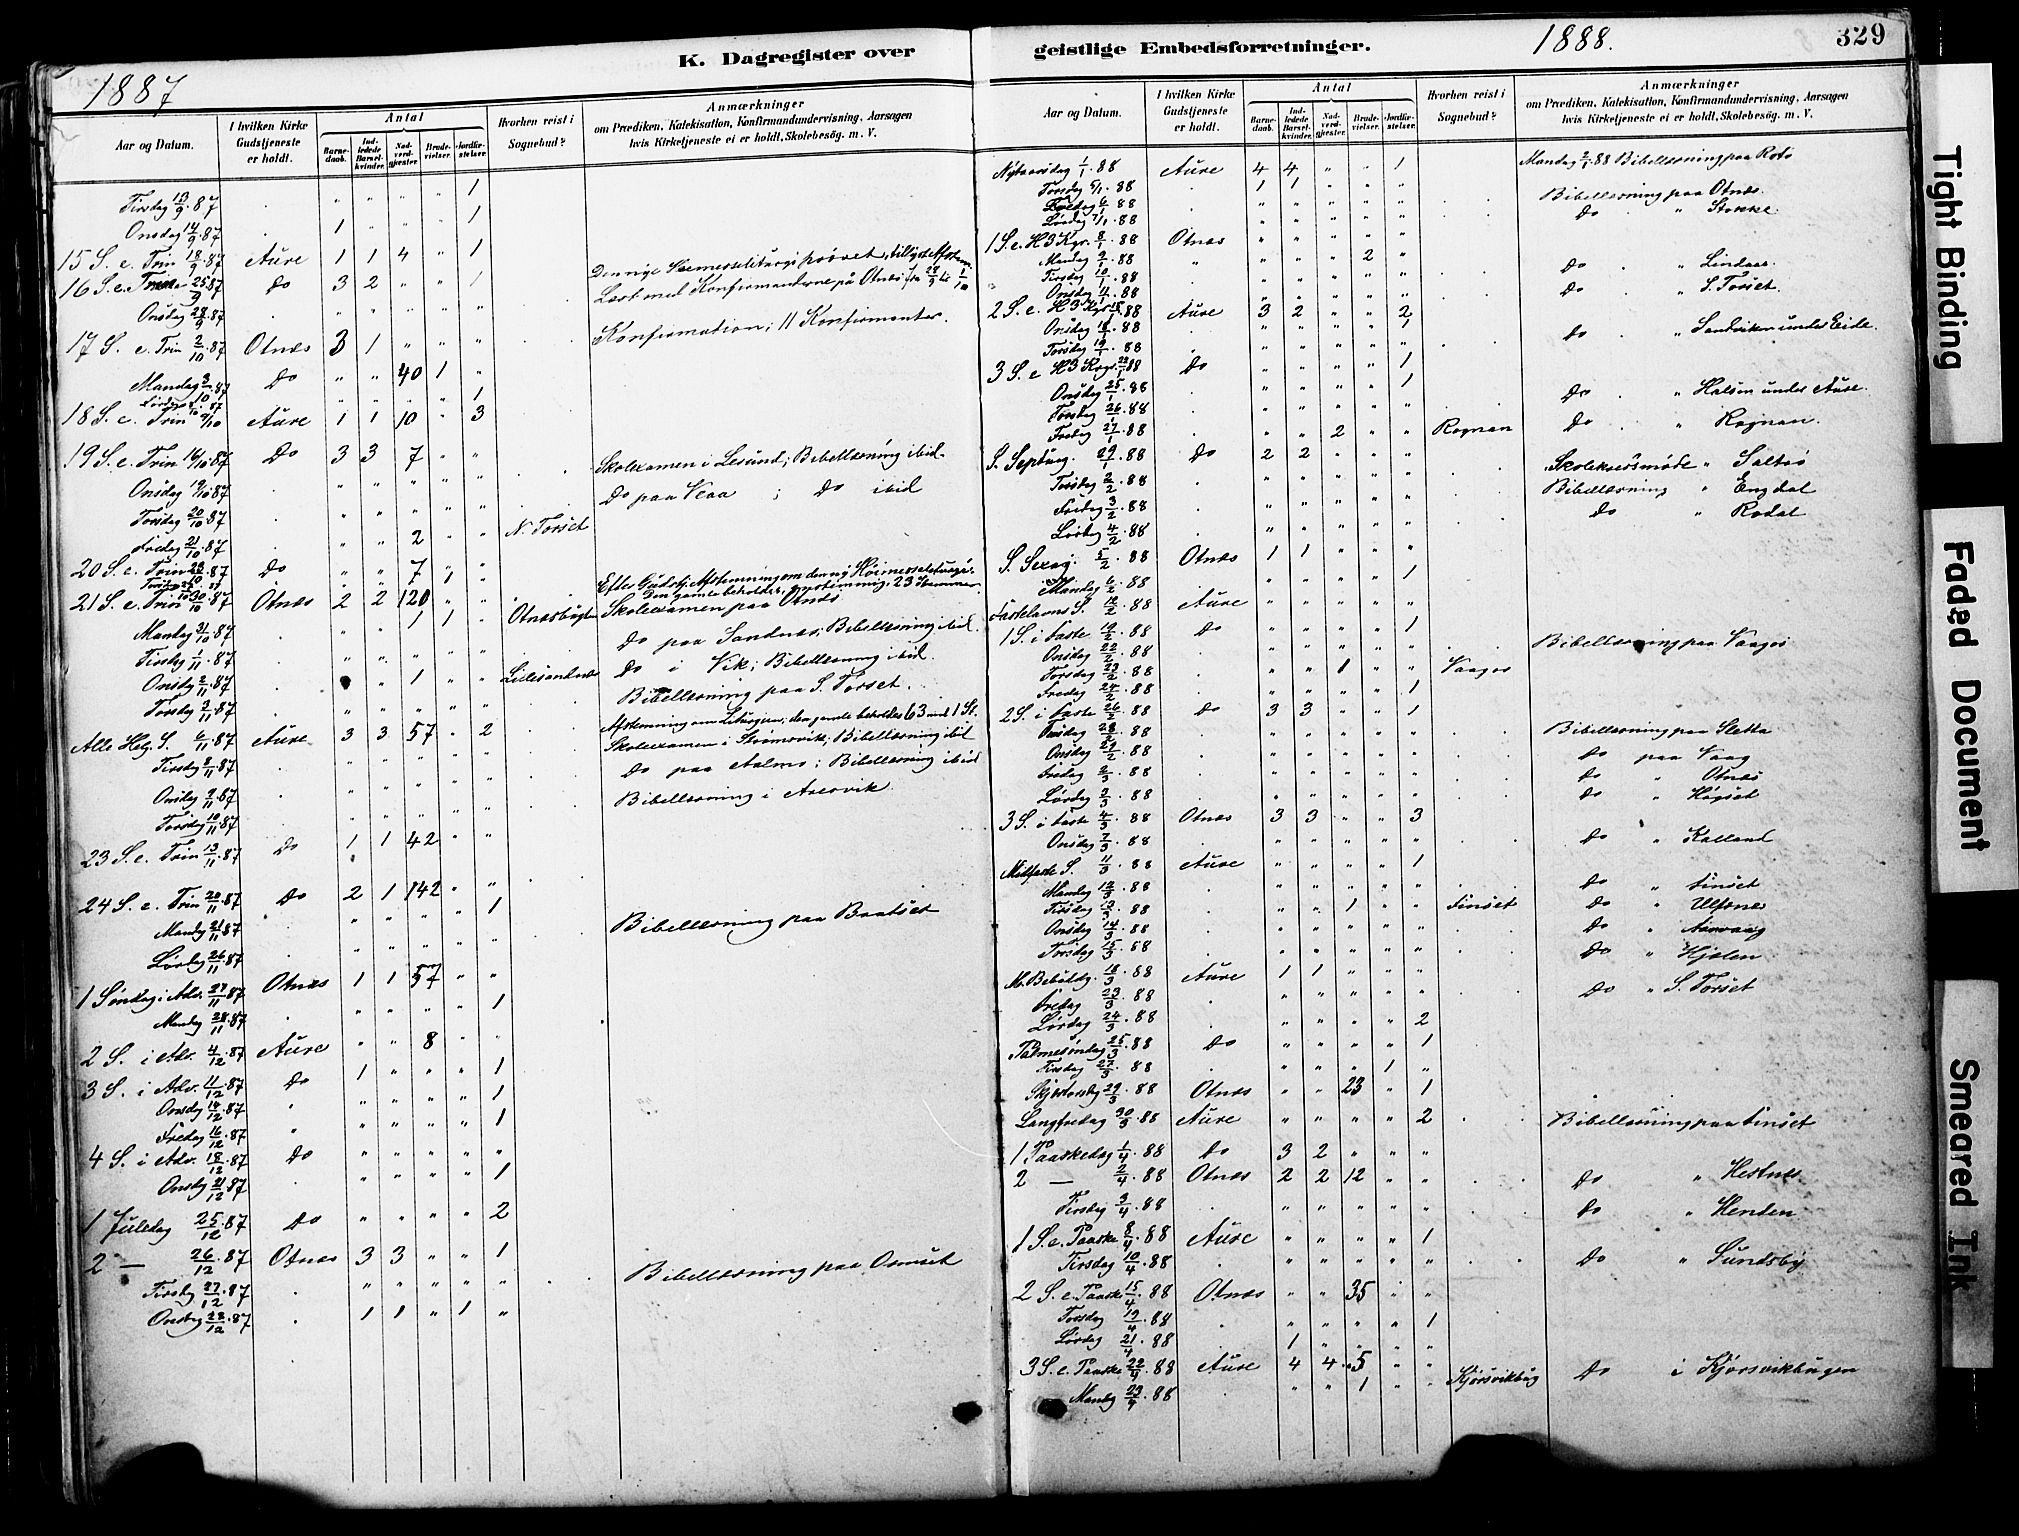 K. Dagregister over
geistlige Embedsforretninger.
1887
1888.
329
Aar og Datum. I hvilken Kirke Gudstjeneste er holdt. Antal Barnedaab. Indledede Barselkvinder. Nadverdgjester. Brudevielser. Jordfæstelser. Hvorhen reist i Sognebud? Anmærkninger om Prædiken, Katekisation, Konfirmandundervisning, Aarsagen hvis Kirketjeneste ei er holdt, Skolebesøg. m. V.
Tirsdag 13/9.87 . " " " " 1
Onsdag 14/9.87 . 1 " " " 1
15 S. e. Trin 18/9.87 Aure 1 1 4 " 1
16 S. e. Trin 25/9.87 Do 3 2 " " 1
Onsdag 28/9.87 . " " " " " Læst med Konfirmanderne på Otnæs fra 28/9 til 1/10
17 S. e. Trin 2/10.87 Otnæs 3 1 " " " Konfirmation; 11 Konfirmanter.
Mandag 3/10.87 Do " " 40 1 "
Lørdag 8/10.87 " " " " 1
18 S. e. Trin 9/10 Aure 1 1 10 " 3
19 S. e. Trin 16/10.87 Do 3 3 7 " "
Onsdag 19/10.87 . " " " " " Skolexamen i Lesund; Bibellæsning ibid.
Torsdag 20/10.87 . " " " " " Do paa Veaa ; Do ibid
Fredag 21/10.87 . " " 2 " " N. Torset
20 S. e. Trin 23/10.87 Do " " 7 " "
21 S. e. Trin 30/10.87 Otnæs 2 2 120 " "
Mandag 31/10.87 . " " 1 1 " Otnæsbugten Skolexamen paa Otnæs
Tirsdag 1/11.87 . " " " " " Do paa Sandnæs; Bibellæsning ibid.
Onsdag 2/11.87 . " 1 " " Lillesandnæs Do i Vik; Bibellæsning ibid.
Torsdag 3/11.87 . " " " " " Bibellæsning paa S. Torset.
Alle Helg. S. 6/11.87 Aure 3 3 57 " 2 Afstemning om Liturgien; den gamle beholdes 63 mod 1 St.
Tirsdag 8/11.87 . " " " " " Skolexamen i Strømsvik; Bibellæsning ibid
Onsdag 9/11.87 . " " " " " Do paa Aalmo; Bibellæsning ibid
Torsdag 10/11.87 . " " " " " Bibellæsning i Aresvik
23 S. e. Trin 13/11.87 Do 1 1 42 " "
24 S. e. Trin 20/11.87 Do 2 1 142 " "
Mandag 21/11.87 . " " " " 1 Bibellæsning paa Baatset
Lørdag 26/11.87 . " " " " "
1 Søndag i Adv. 27/11.87 Otnæs 1 1 57 " "
Mandag 28/11.87 . " " " " 1
2 S. i Adv. 4/12.87 Aure " " 8 " "
3 S. i Adv. 11/12.87 Do 1 " " " 1
Onsdag 14/12.87 " " " " " 1
Fredag 16/12.87 " " " " " 1
4 S. i Adv. 18/12.87 Do " " " " "
Onsdag 21/12.87 . " " " " 1
1 Juledag 25/12.87 Do " " " " 2
2 — 26/12.87 Otnæs 3 3 " " 1
Tirsdag 27/12.87 . " " " " " Bibellæsning paa Osmset
Onsdag 28/12.87 . 1 1 " 1 "
Aar og Datum. I hvilken Kirke Gudstjeneste er holdt. Antal Barnedaab. Indledede Barselkvinder. Nadverdgjester. Brudevielser. Jordfæstelser. Hvorhen reist i Sognebud? Anmærkninger om Prædiken, Katekisation, Konfirmandundervisning, Aarsagen hvis Kirketjeneste ei er holdt, Skolebesøg. m. V.
Nytaarsdag 1/1.88 Aure 4 4 " " 1 Mandag 2/1.88 Bibellæsning paa Rotø
Torsdag 5/1.88 . 1 1 " " "
Fredag 6/1 88 . " " " " " Bibellæsning paa Otnæs.
Lørdag 7/1.88 . " " " " " Do " Stokke.
1 S. e. H3Kgr. 8/1.88 Otnæs " " " " "
Mandag 9/1.88 " " " " 2 "
Tirsdag 10/1.88 . " " " " " Do " Lindaas.
Onsdag 11/1.88 . " " " " " Do " S. Torset.
2 S. e. H3Kgr. 15/1.88 Aure 3 2 " " 2
Onsdag 18/1.88 . " " " " 1
Torsdag 19/1.88 . " " " " " Do " Sandviken under Eide.
3 S. e H3Kgr. 22/1.88 Do " " " " 1
Onsdag 25/1.88 . " " " " 1
Torsdag 26/1.88 . " " " " " Do " Halsen under Aure.
Fredag 27/1.88 . " " 2 " " Rognan Do " Rognan.
S. Septuag. 29/1.88 Do 2 2 " " "
Torsdag 2/2.88 . " " " " " Skolekredsmøde " Saltrø
Fredag 3/2.88 . " " " " " Bibellæsning " Engdal
Lørdag 4/2.88 . " " " " " Do " Rodal
S. Sexag. 5/2.88 Otnæs 1 1 " " "
Mandag 6/2.88 " " " " 1
Fastelavns S. 12/2.88 Aure " " " " "
1 S. i Faste 19/2.88 Do " " " " 1
Onsdag 22/2.88 . " " " " " Bibellæsning paa Vaagos
Torsdag 23/2.88 . " " 1 " " Vaagos
Fredag 24/2.88 . " " " " 1
2 S. i Faste 26/2.88 Do 3 3 " " 1
Tirsdag 28/2.88 . " " " " " Bibellæsning paa Sletta
Onsdag 29/2.88 . " " " " " Do paa Vaag
Fredag 2/3.88 . " " " " " Do " Otnæs
Lørdag 3/3.88 . " " " " " Do " Høgset
3 S. i Faste 4/3.88 Otnæs 3 3 " " 3
Onsdag 7/3.88 . " " " " " Do " Kalland
Midfaste S. 11/3.88 Aure " " " " 1
Mandag 12/3.88 . " " " " " Do " Finset
Tirsdag 13/3.88 . " " 1 " " Finset Do " Ulfsnes
Onsdag 14/3.88 . " " " " " Do " Aarvaag
Torsdag 15/3.88 . " " " " " Do " Hjølen
M. Bebudelsg. 18/3.88 Aure 1 1 " " "
Fredag 23/3.88 . " " " " " Do " S. Torset
Lørdag 24/3.88 . " " " " 2
Palmesøndag 25/3.88 Do " " " " 1
Tirsdag 27/3.88 . " " " 1 "
Skjærtorsdag 29/3.88 Otnæs " " 23 " 1
Langfredag 30/3.88 Aure " " " " 2 Bibellæsning paa Finset
1 Paaskedag 1/4.88 Do 3 2 " " "
2 — 2/4.88 Otnæs 2 2 12 " " Do " Hestnæs
Tirsdag 3/4.88 . " " " " " Do " Henden
1 S. e. Paaske 8/4.88 Aure " " " " 1
Tirsdag 10/4.88 . " " " " " Do " Sundsby
2 S. e. Paaske 15/4.88 Otnæs " " 35 " "
Torsdag 19/4.88 . " " " " 1
Lørdag 21/4.88 . 1 " " " "
3 S. e. Paaske 22/4.88 Aure 4 4 5 " "
Mandag 23/4.88 . " " 1 " " Kjørsvikbug Do i Kjørsvikbugen
Tight Binding
Faded Document
Smeared Ink